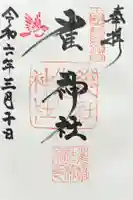 奉拝
雀神社
令和六年三月二十日